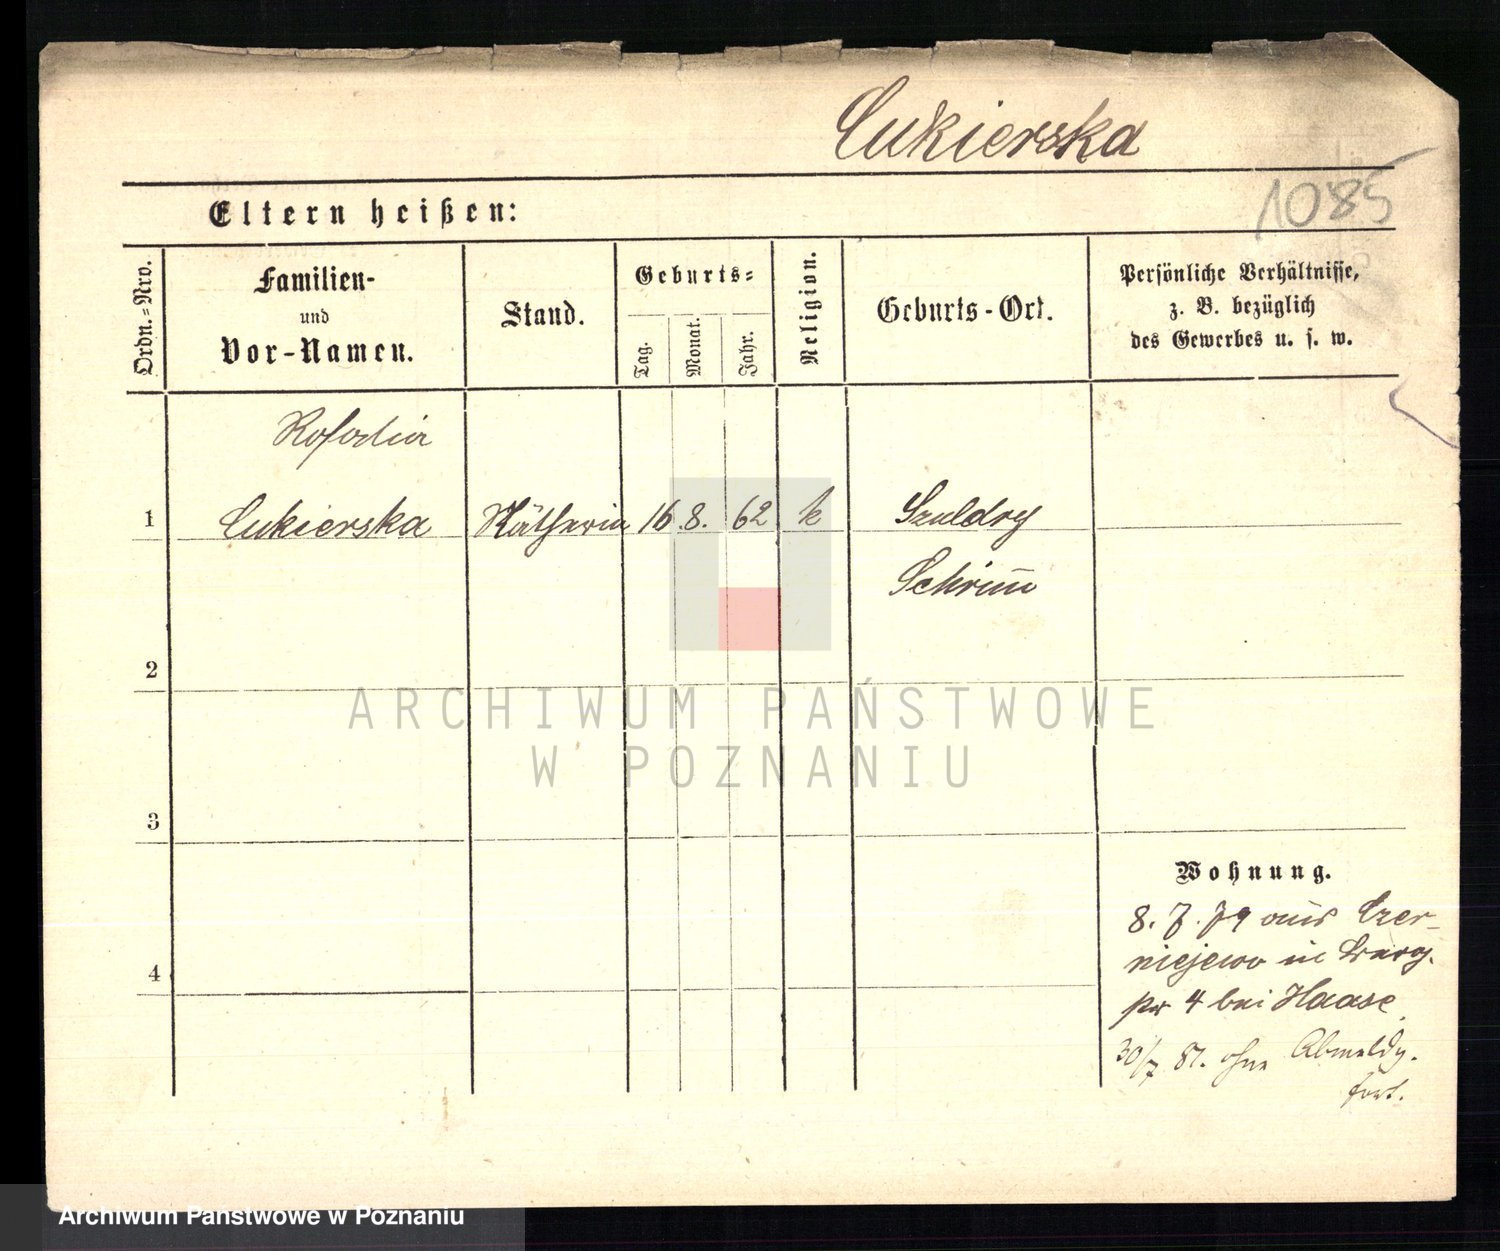 Cukierska
1085
Eltern heißen:
Ordn.-Nro.
Familien-
und
Vor-Namen.
Stand.
Geburts-
Tag.
Monat.
Jahr.
Religion.
Geburts-Ort.
Persönliche Verhältnisse,
z. B. bezüglich
des Gewerbes u. s. w.
1 Cukierska Nätherin 16 8. 62 k Szoldry
Schrimm
2
ARCHIWUM PAŃSTWOWE
W POZNANIU
3
Wohnung.
8. 7. 79 aus Czer-
niejewo in
4
4 bei Haase
30/7 81. ohne Abmeldg.
fort.
Archiwum Państwowe w Poznaniu